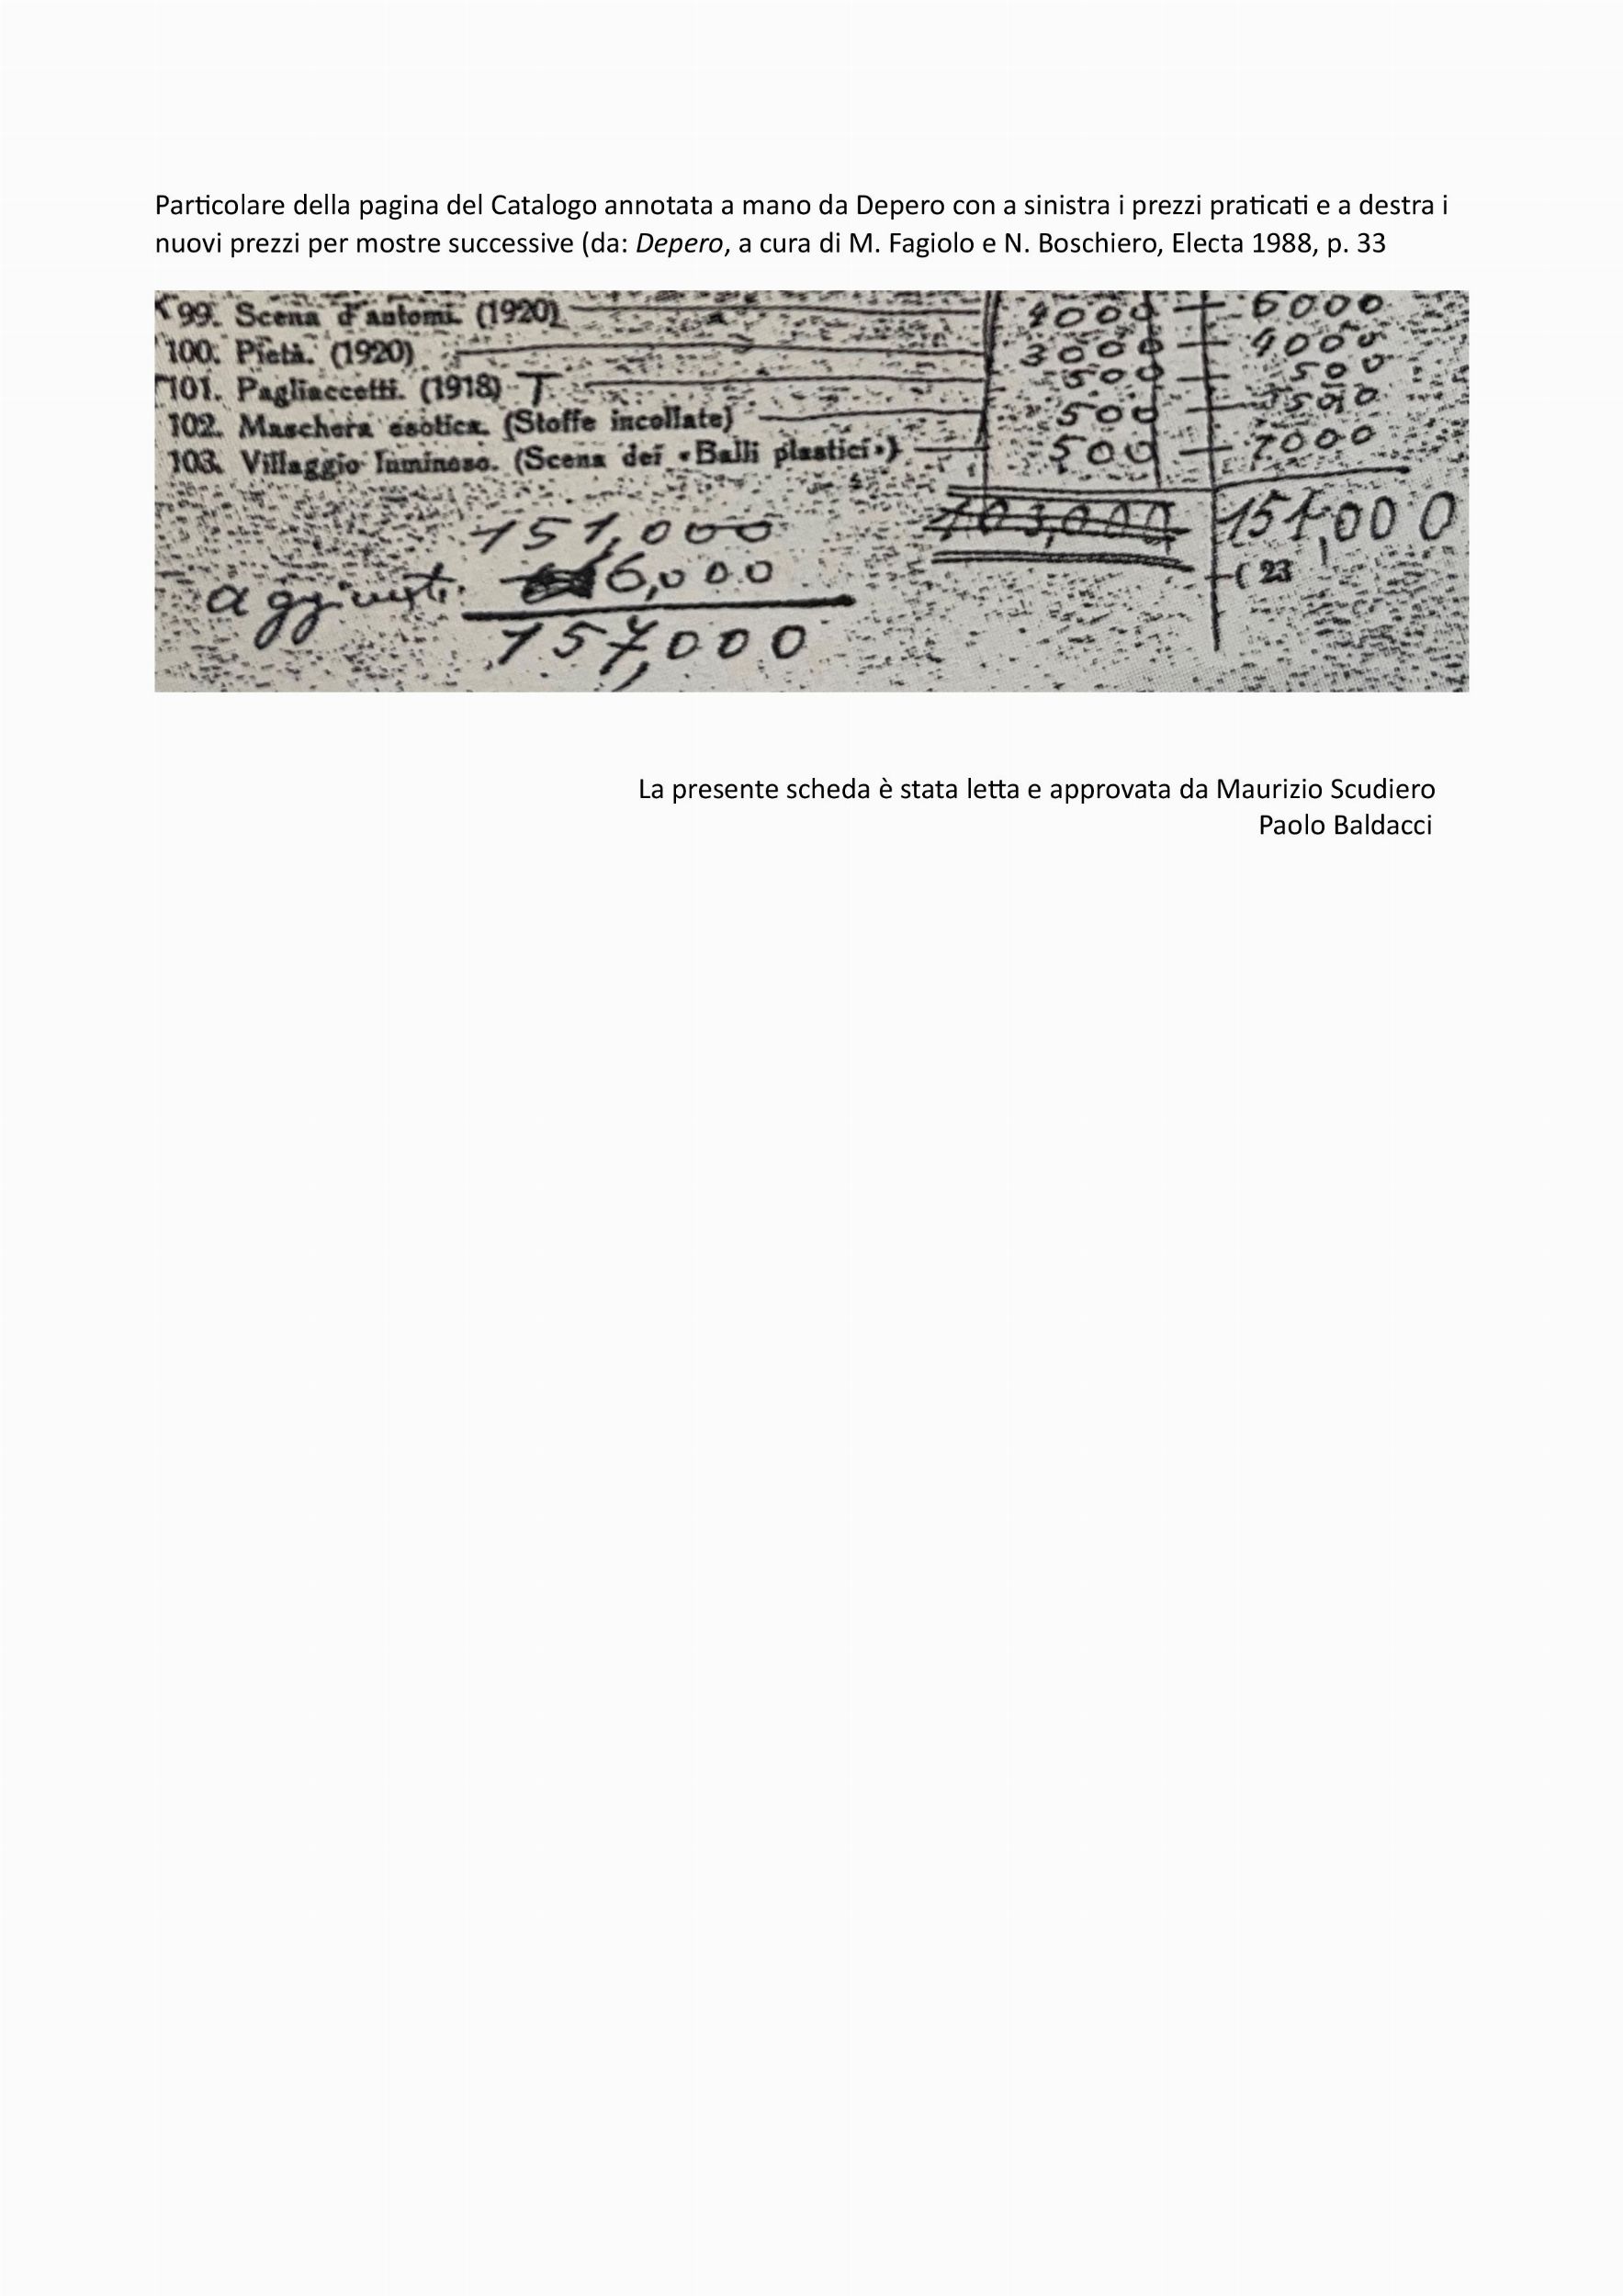 Particolare della pagina del Catalogo annotata a mano da Depero con a sinistra i prezzi praticati e a destra i
nuovi prezzi per mostre successive (da: Depero, a cura di M. Fagiolo e N. Boschiero, Electa 1988, p. 33
99. Scena d'automi. (1920) 4000 — 6000
100. Pietà. (1920) 3000 — 4000
101. Pagliaccetti. (1918) T 500 — 500
102. Maschera esotica. (Stoffe incollate) 500 —
103. Villaggio luminoso. (Scena dei «Balli plastici») 500 —
103,000 151,000
151,000
( 23
6,000
157,000
La presente scheda è stata letta e approvata da Maurizio Scudiero
Paolo Baldacci